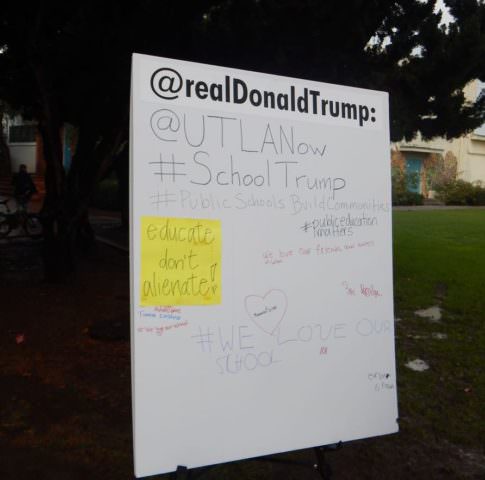 @realDonaldTrump:
@UTLANow
#SchoolTrump
#Public Schools Build Communities
#publiceducation
matters
educate
don't
alienate!
we love our friends and
#WE LOVE OUR
SCHOOL